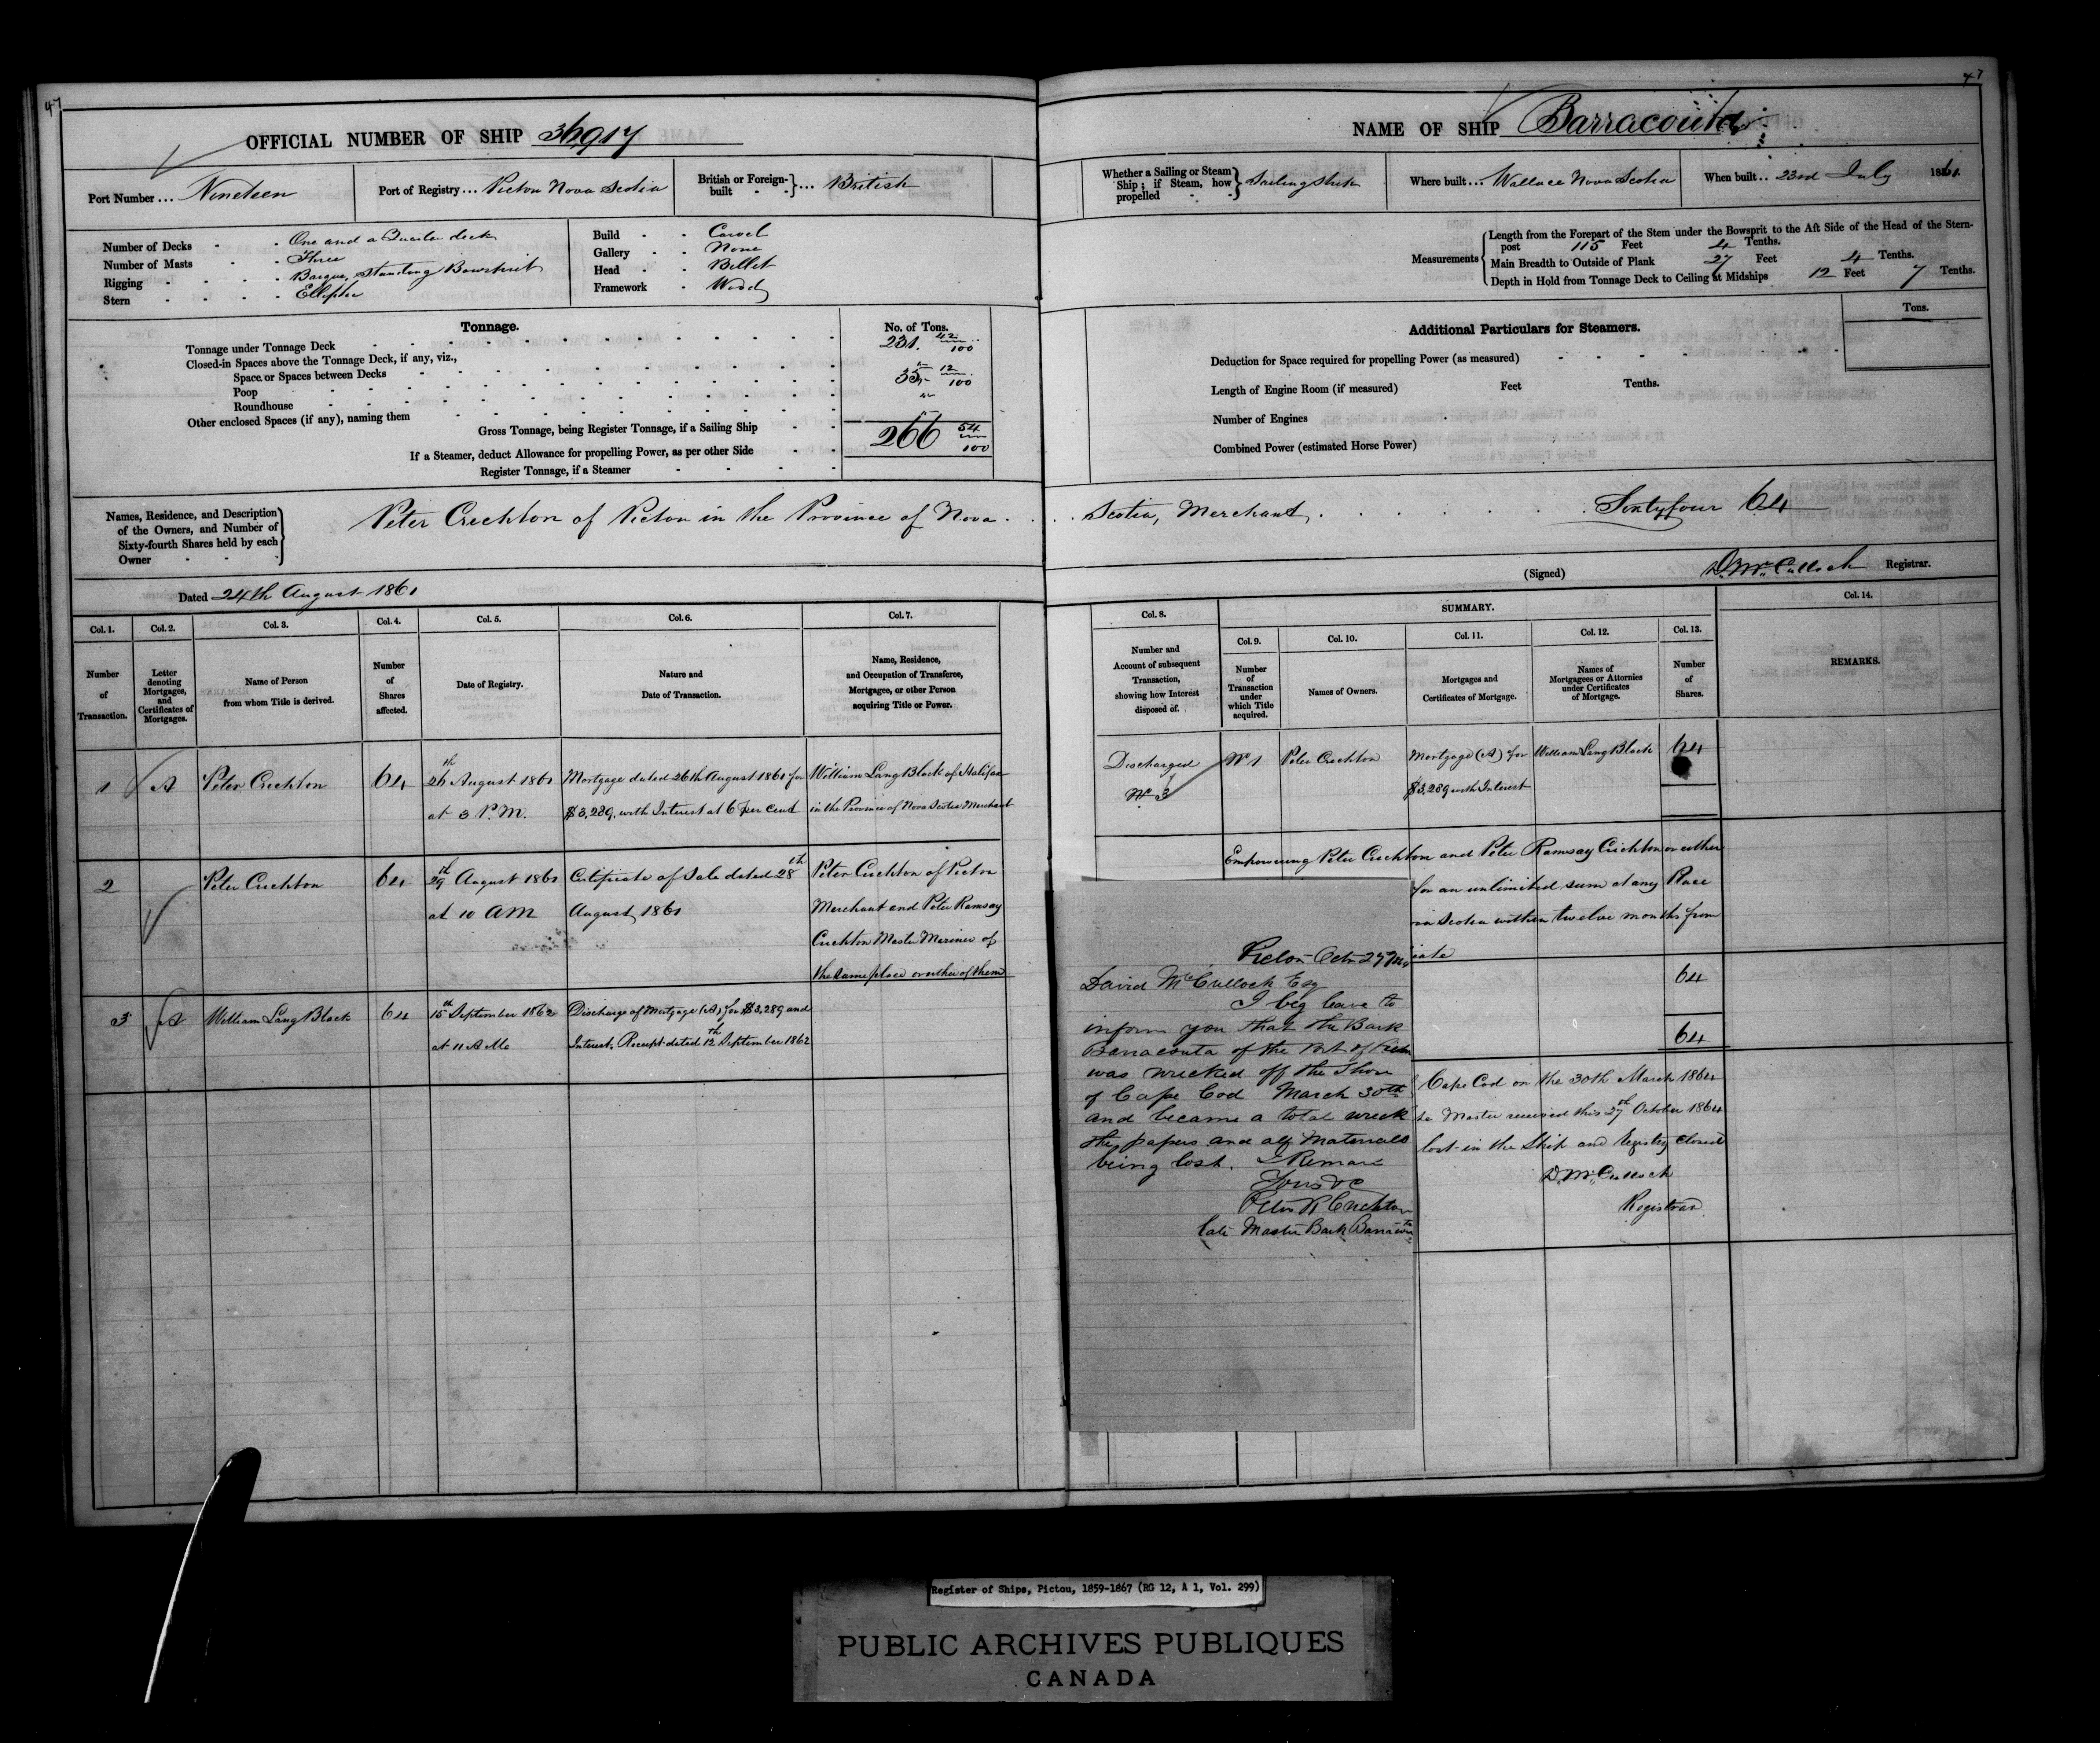 47
OFFICIAL NUMBER OF SHIP 36917
Port Number ... Nineteen
Port of Registry ... Pictou Nova Scotia
British or Foreign-built - - } ... British
Number of Decks - - One and a Quarter deck
Number of Masts - - Three
Rigging - - - - Barque, Standing Bowsprit
Stern - - - - Elliptic
Build - - Carvel
Gallery - - None
Head - - Billet
Framework - Wood
Tonnage.
No. of Tons.
Tonnage under Tonnage Deck 231. 42/100
Closed-in Spaces above the Tonnage Deck, if any, viz.,
Space or Spaces between Decks
Poop 35 12/100
Roundhouse
Other enclosed Spaces (if any), naming them
Gross Tonnage, being Register Tonnage, if a Sailing Ship 266 54/100
If a Steamer, deduct Allowance for propelling Power, as per other Side
Register Tonnage, if a Steamer
Names, Residence, and Description
of the Owners, and Number of
Sixty-fourth Shares held by each
Owner
Peter Crichton of Pictou in the Province of Nova
Dated 24th August 1861
Col. 1. Col. 2. Col. 3. Col. 4. Col. 5. Col. 6. Col. 7.
Number of Transaction.
Letter denoting Mortgages, and Certificates of Mortgages.
Name of Person from whom Title is derived.
Number of Shares affected.
Date of Registry.
Nature and Date of Transaction.
Name, Residence, and Occupation of Transferee, Mortgagee, or other Person acquiring Title or Power.
1 A Peter Crichton 64 26th August 1861 Mortgage dated 26th August 1861 for William Lang Black of Halifax
at 3 P.M. $3,289, with Interest at 6 per cent in the Province of Nova Scotia Merchant
2 Peter Crichton 64 29th August 1861 Certificate of Sale dated 28th Peter Crichton of Pictou
at 10 AM August 1861 Merchant and Peter Ramsay
Crichton Master Mariner of
the same place or either of them
3 A William Lang Black 64 15th September 1862 Discharge of Mortgage (A) for $3,289 and
at 11 A M Interest. Receipt dated 12th September 1862
47
NAME OF SHIP Barracouta
Whether a Sailing or Steam Ship; if Steam, how propelled - - } Sailing Ship
Where built ... Wallace Nova Scotia
When built .. 23rd July 1861.
Measurements
Length from the Forepart of the Stem under the Bowsprit to the Aft Side of the Head of the Stern-
post 115 Feet 4 Tenths.
Main Breadth to Outside of Plank 27 Feet 4 Tenths.
Depth in Hold from Tonnage Deck to Ceiling at Midships 12 Feet 7 Tenths.
Additional Particulars for Steamers.
Tons.
Deduction for Space required for propelling Power (as measured)
Length of Engine Room (if measured) Feet Tenths.
Number of Engines
Combined Power (estimated Horse Power)
Scotia, Merchant, Sixtyfour 64
(Signed) D. McCulloch Registrar.
SUMMARY.
Col. 8. Col. 9. Col. 10. Col. 11. Col. 12. Col. 13. Col. 14.
Number and Account of subsequent Transaction, showing how Interest disposed of.
Number of Transaction under which Title acquired.
Names of Owners.
Mortgages and Certificates of Mortgage.
Names of Mortgagees or Attorneys under Certificates of Mortgage.
Number of Shares.
REMARKS.
Discharged No 1 Peter Crichton Mortgage (A) for William Lang Black 64
No 3 $3,289 with Interest
Empowering Peter Crichton and Peter Ramsay Crichton or either
for an unlimited sum at any Place
Scotia within twelve months from
64
64
Cape Cod on the 30th March 1864
Master received this 27th October 1864
lost in the Ship and Registry Closed
D. McCulloch
Registrar
Pictou Octr 27
David McCulloch Esq
I beg leave to
inform you that the Bark
Barracouta of the Port of Pictou
was wrecked off the Shore
of Cape Cod March 30th
and became a total wreck
the papers and all Materials
being lost. I Remain
Yours &c
Peter R Crichton
late Master Bark Barracouta
Register of Ships, Pictou, 1859-1867 (RG 12, A 1, Vol. 299)
PUBLIC ARCHIVES PUBLIQUES
CANADA